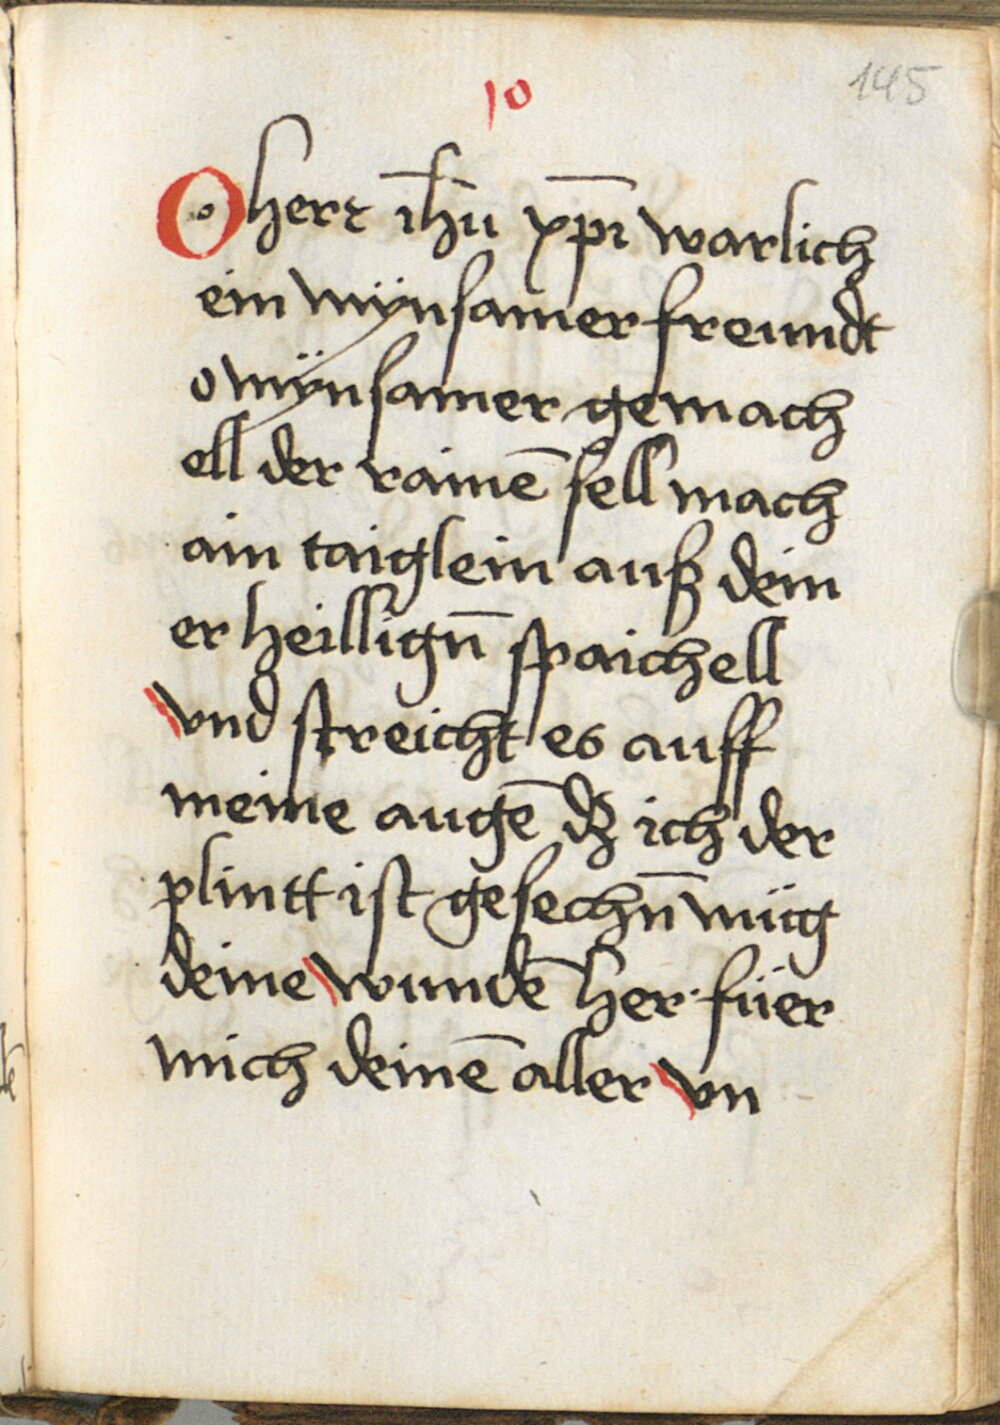 145
10
O herr ih̄u xp̄i warlich
ein mÿnsamer freundt
o mÿnsamer gemach
ell der rainē sell mach
ain taiglein auß dein
er heilligñ spaichell
vnd streicht es auff
meine augē dz ich der
plintt ist gesechn̄ müg
deine wundē her füer
mich deinē aller vn